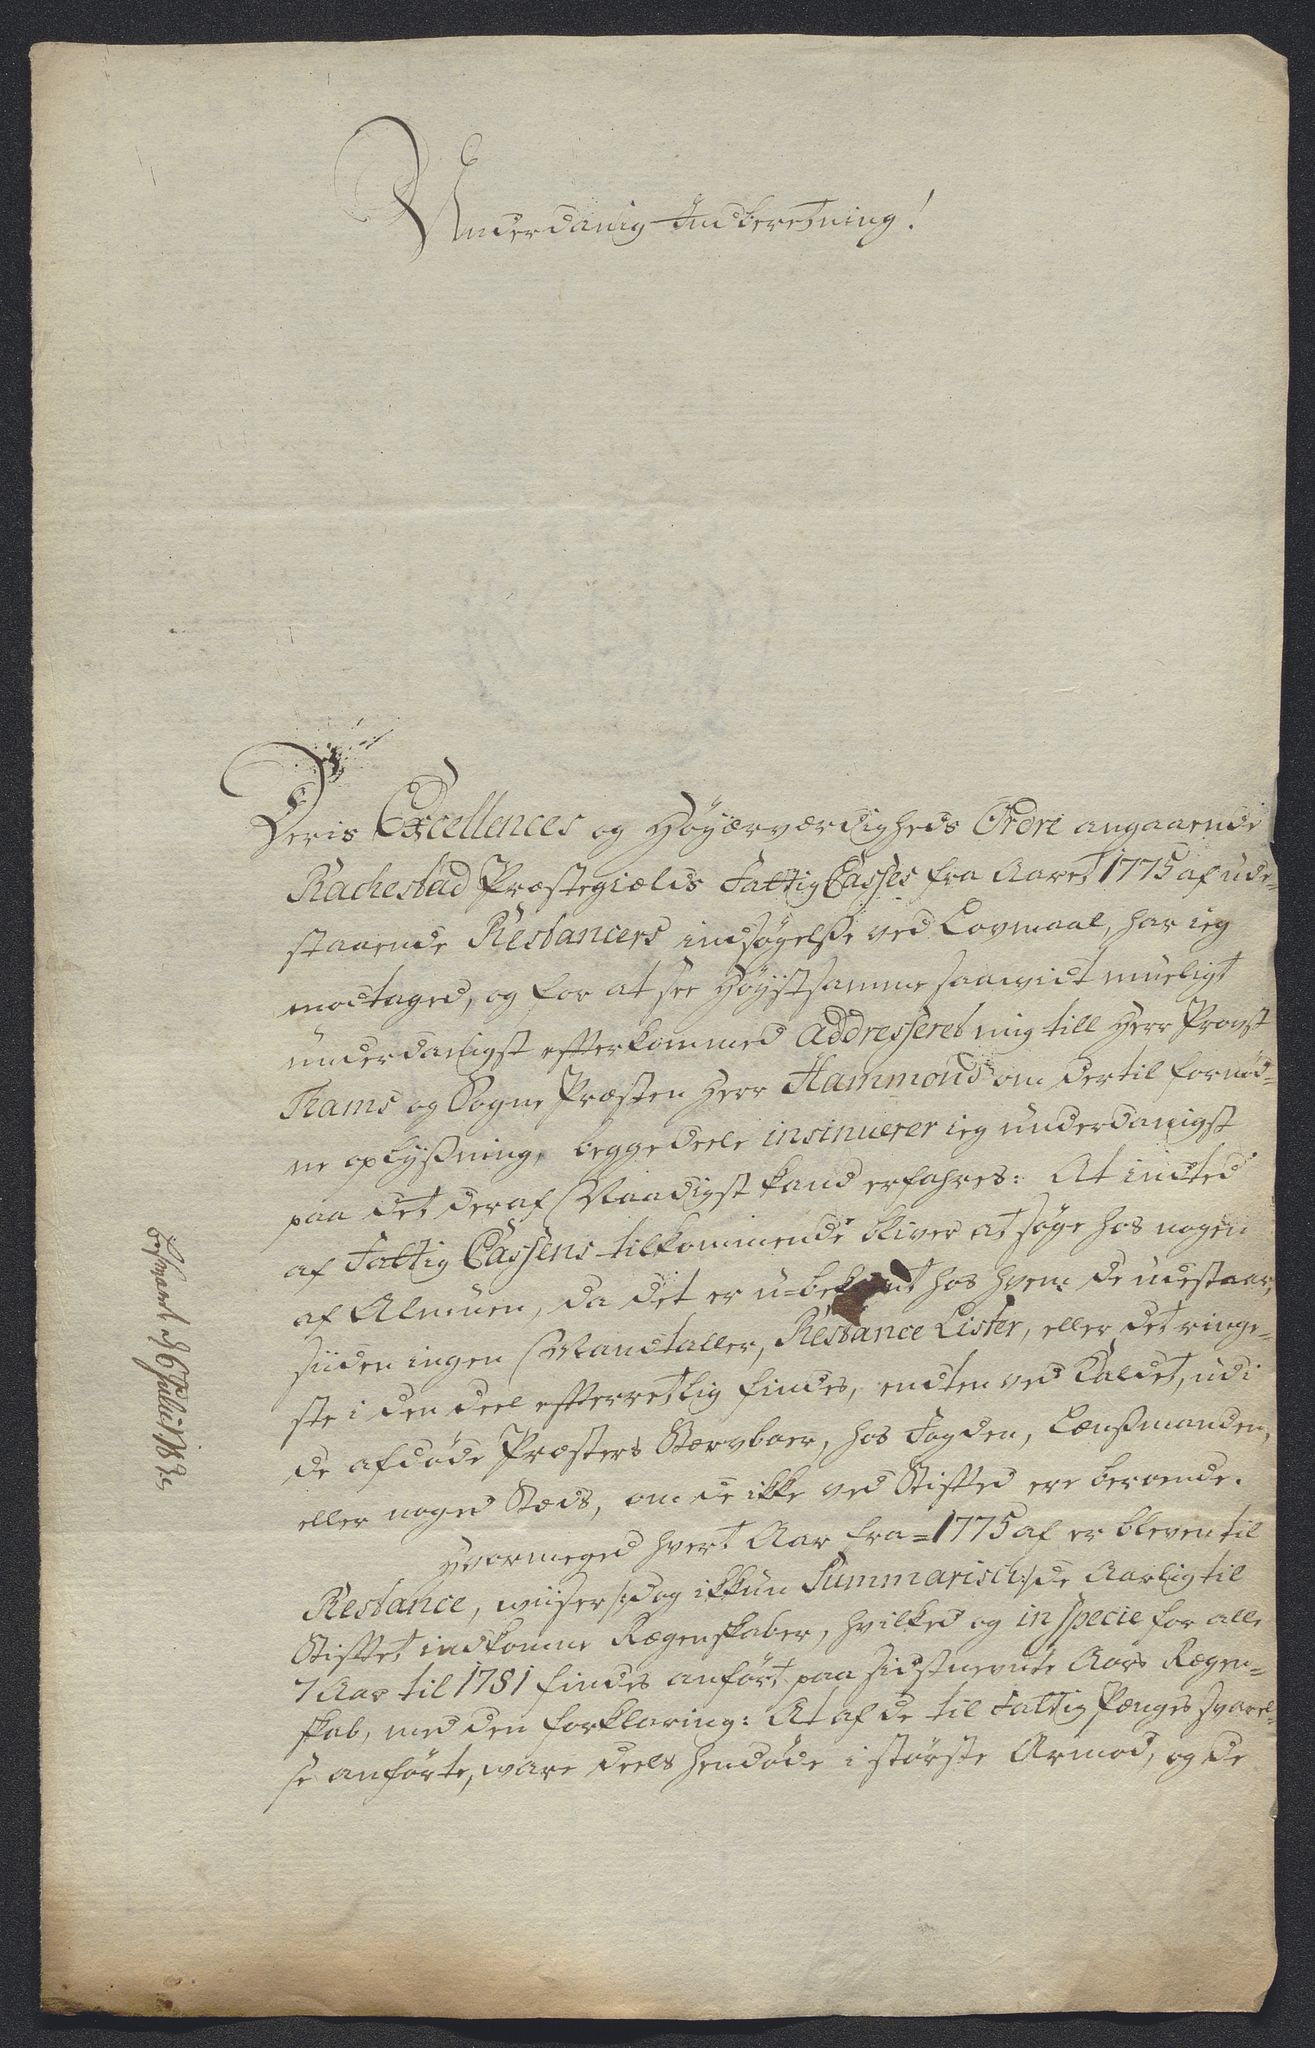 Underdanig Indberetning!
Deris Excellences og Høyærværdigheds Ordre angaaende
Rachestad Præstegields Fattig Casses fra Aaret 1775 af ude-
staaende Restancers indsøgelsse ved Lovmaal, har ieg
modtaged, og for at see Høystsamme saawidt mueligt
underdanigst efterkommed addresseret mig till Herr Provst
Rams og Sogne Præsten Herr Hammond om dertil fornød-
ne oplyssning, begge deele insinuerer ieg underdanigst
paa det deraf Naadigst kand erfahres: At indted
af Fattig Cassens tilkommende bliver at søge hos nogen
af Almuen, da det er u-bekandt hos hvem de udestaar,
siiden ingen Mandtaller, Restance Lister, eller det ringe-
ste i den deel efterretlig findes, endten ved Kaldet, udi
de afdøde Præsters Stervboer, hos Fogden, Lænssmanden,
eller noged Stæds, om de ikke ved Stifted ere beroende.
Hvormeged hvert Aar fra 1775 af er bleven til
Restance, wiiser /: dog ikkun Summarisch :/ de Aarlig til
Stiftet indkomne Regenskaber, hvilked og in specie for alle
7 Aar til 1781 findes anført paa sidstnevnte Aars Regen-
skab, med den forklaring: At af de til Fattig Penges svarel-
se anførte, ware deels hendøde i største Armod, og de